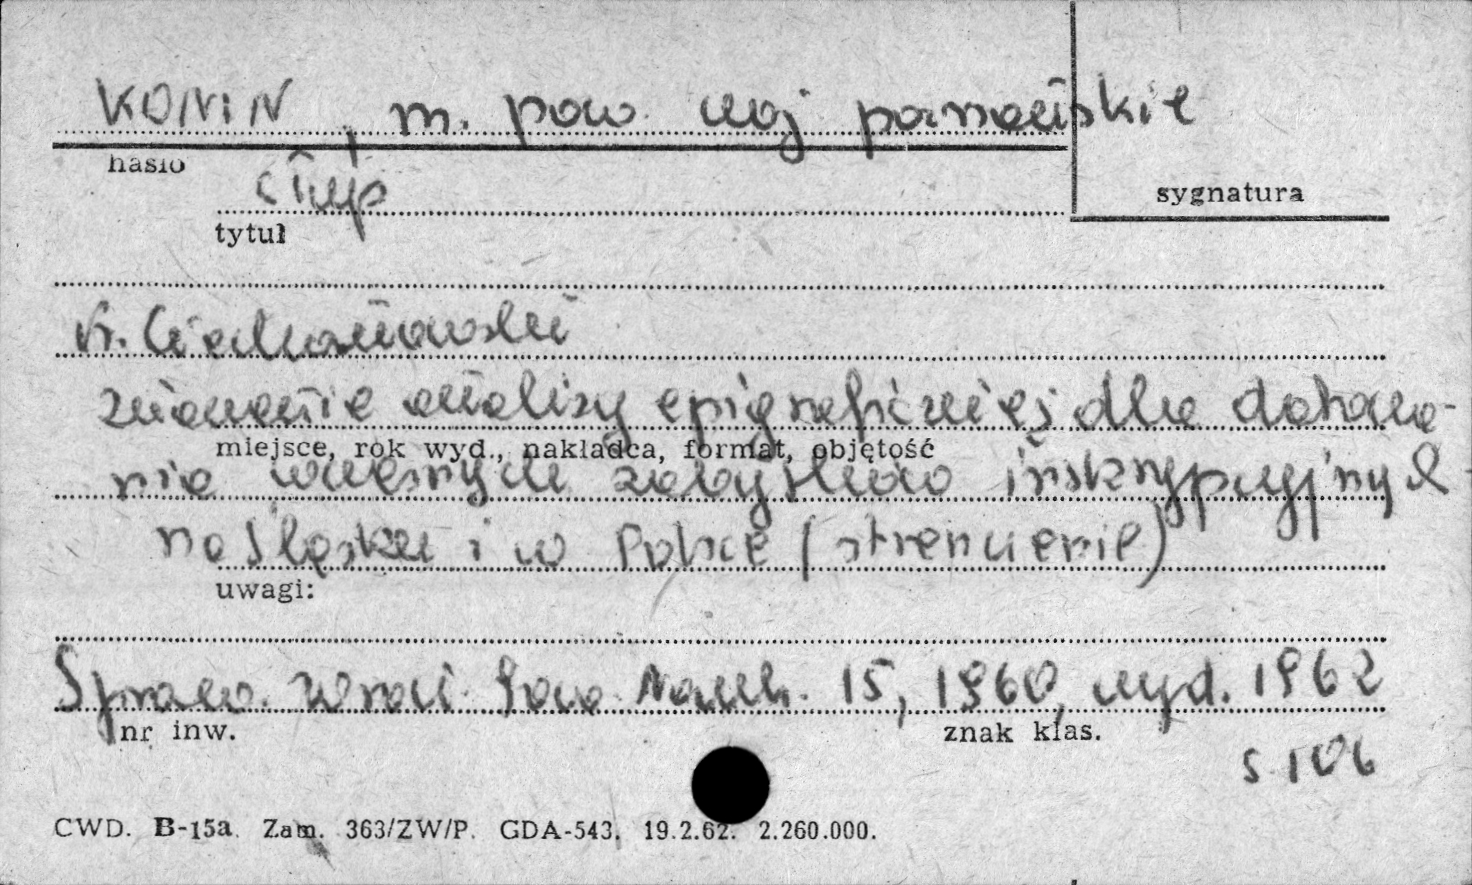 KONIN, m. pow. woj poznańskie
hasło
słup
sygnatura
tytuł
K. Ciechanowski
znaczenie analizy epigraficznej dla datowa-
miejsce, rok wyd., nakładca, format, objętość
nia wczesnych zabytków inskrypcyjnych
na Śląsku i w Polsce (streszczenie)
uwagi:
Spraw. Wroc. Tow. Nauk. 15, 1960, wyd. 1962
nr inw. znak klas.
s 106
CWD. B-15a. Zam. 363/ZW/P. GDA-543. 19.2.62. 2.260.000.